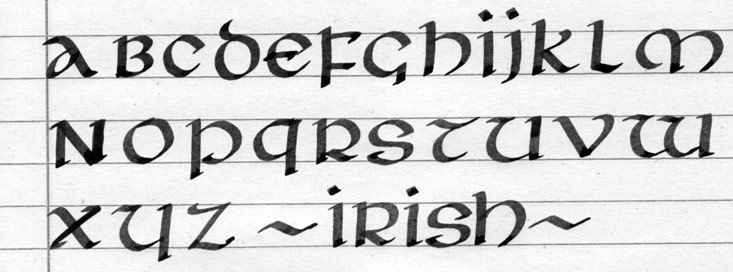 ABCDEFGHIJKLM
NOPQRSTUVW
XYZ ~IRISH~